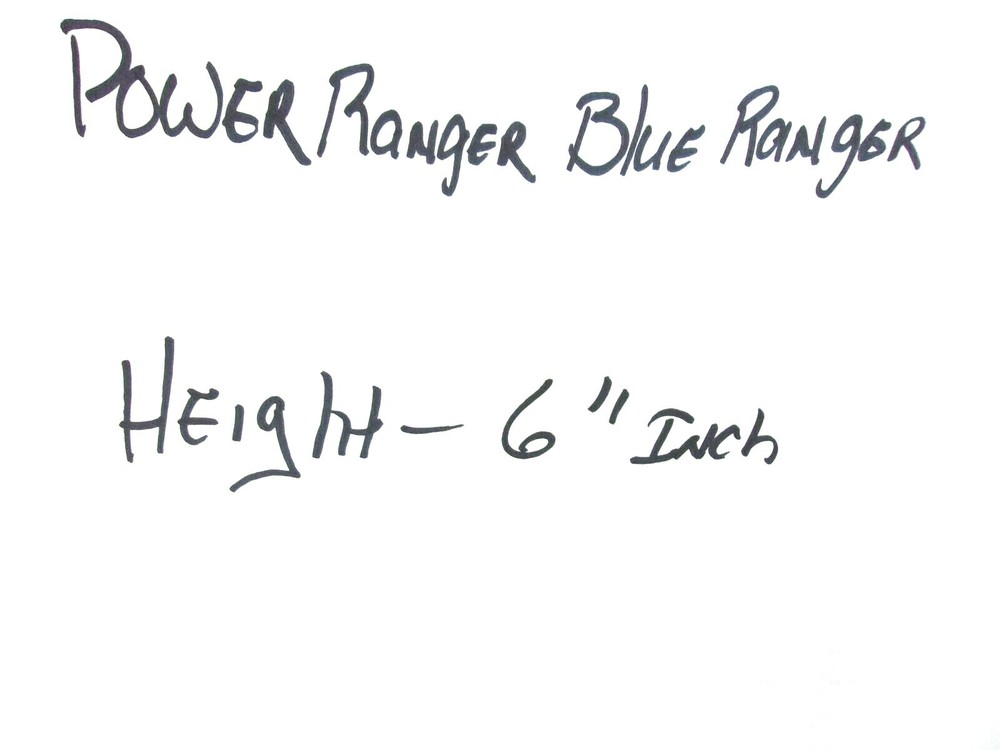 POWER RANGER BLUE RANGER
HEIGHT - 6" INCH